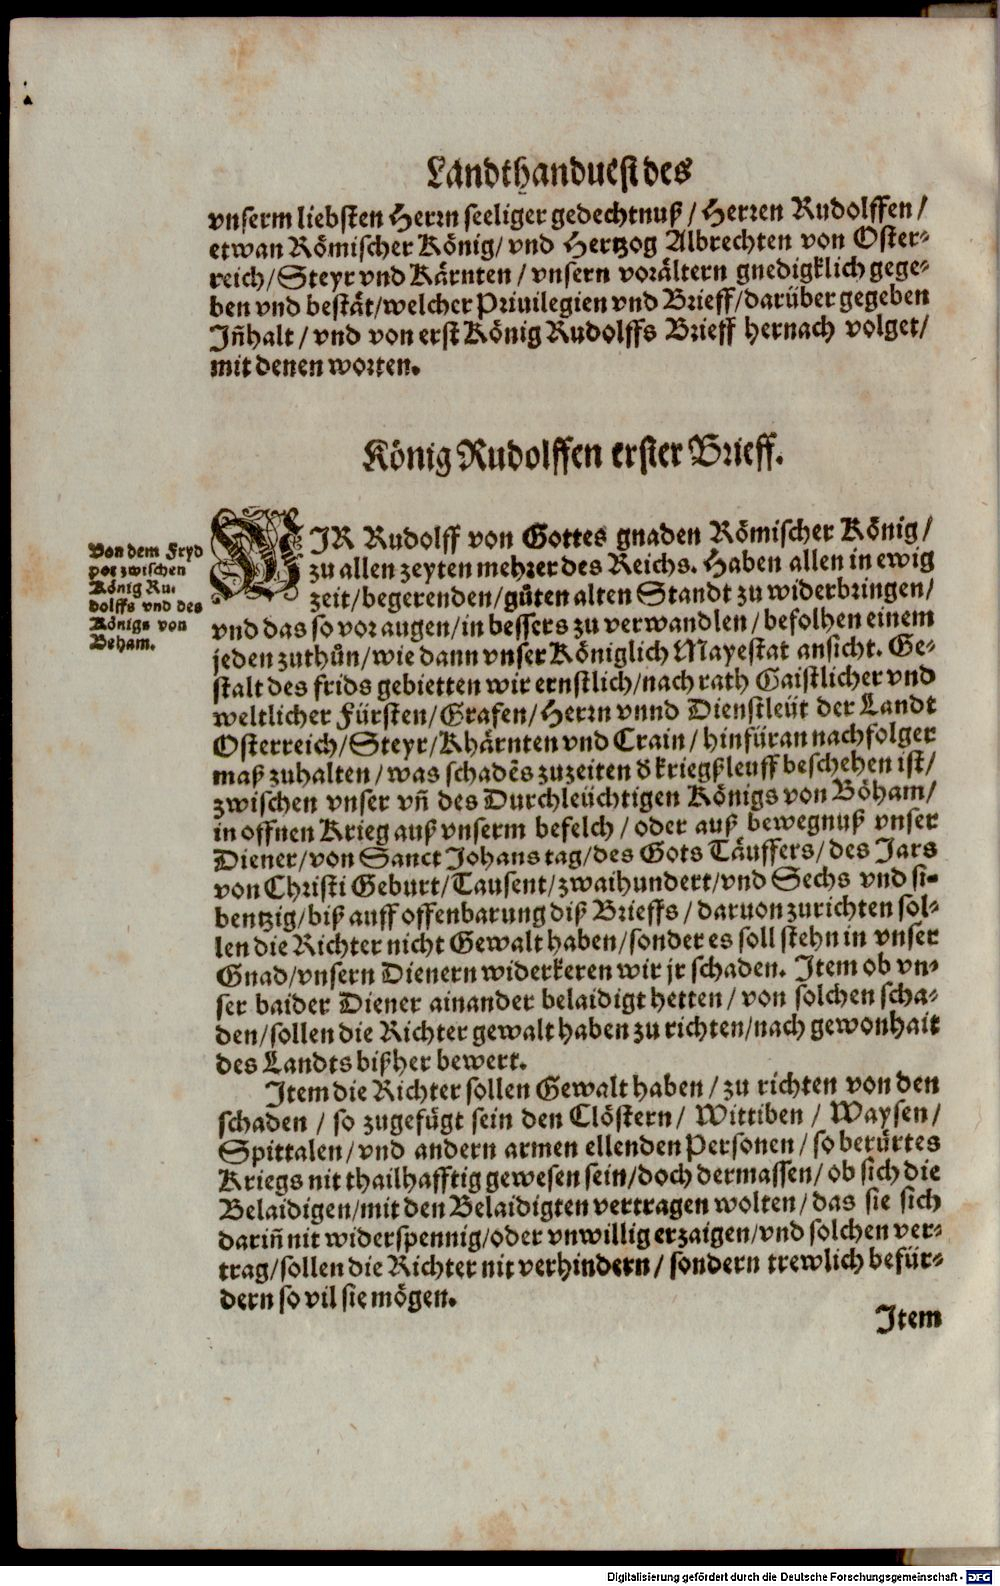 Landthanduest des
vnserm liebsten Herrn seeliger gedechtnuß / Herren Rudolffen /
etwan Römischer König / vnd Hertzog Albrechten von Oster-
reich / Steyr vnd Kärnten / vnsern vorältern gnedigklich gege-
ben vnd bestät / welcher Priuilegien vnd Brieff / darüber gegeben
Jñhalt / vnd von erst König Rudolffs Brieff hernach volget /
mit denen worten.
König Rudolffen erster Brieff.
Von dem Fryd
pot zwischen
König Ru-
dolffs vnd des
Königs von
Beham.
WJR Rudolff von Gottes gnaden Römischer König /
zu allen zeyten mehrer des Reichs. Haben allen in ewig
zeit / begerenden / gůten alten Standt zu widerbringen /
vnd das so vor augen / in bessers zu verwandlen / befolhen einem
jeden zuthůn / wie dann vnser Königlich Mayestat ansicht. Ge-
stalt des frids gebietten wir ernstlich / nach rath Gaistlicher vnd
weltlicher Fürsten / Grafen / Herrn vnnd Dienstleüt der Landt
Osterreich / Steyr / Khärnten vnd Crain / hinfüran nachfolger
maß zuhalten / was schadēs zuzeiten d̕ kriegßleuff beschehen ist /
zwischen vnser vñ des Durchleüchtigen Königs von Böham /
in offnen Krieg auß vnserm befelch / oder auß bewegnuß vnser
Diener / von Sanct Johans tag / des Gots Täuffers / des Jars
von Christi Geburt / Tausent / zwaihundert / vnd Sechs vnd si-
bentzig / biß auff offenbarung diß Brieffs / daruon zurichten sol-
len die Richter nicht Gewalt haben / sonder es soll stehn in vnser
Gnad / vnsern Dienern widerkeren wir jr schaden. Jtem ob vn-
ser baider Diener ainander belaidigt hetten / von solchen scha-
den / sollen die Richter gewalt haben zu richten / nach gewonhait
des Landts bißher bewert.
Jtem die Richter sollen Gewalt haben / zu richten von den
schaden / so zugefügt sein den Clöstern / Wittiben / Waysen /
Spittalen / vnd andern armen ellenden Personen / so berürtes
Kriegs nit thailhafftig gewesen sein / doch dermassen / ob sich die
Belaidigen / mit den Belaidigten vertragen wolten / das sie sich
dariñ nit widerspennig / oder vnwillig erzaigen / vnd solchen ver-
trag / sollen die Richter nit verhindern / sondern trewlich befür-
dern so vil sie mögen.
Jtem
Digitalisierung gefördert durch die Deutsche Forschungsgemeinschaft - DFG